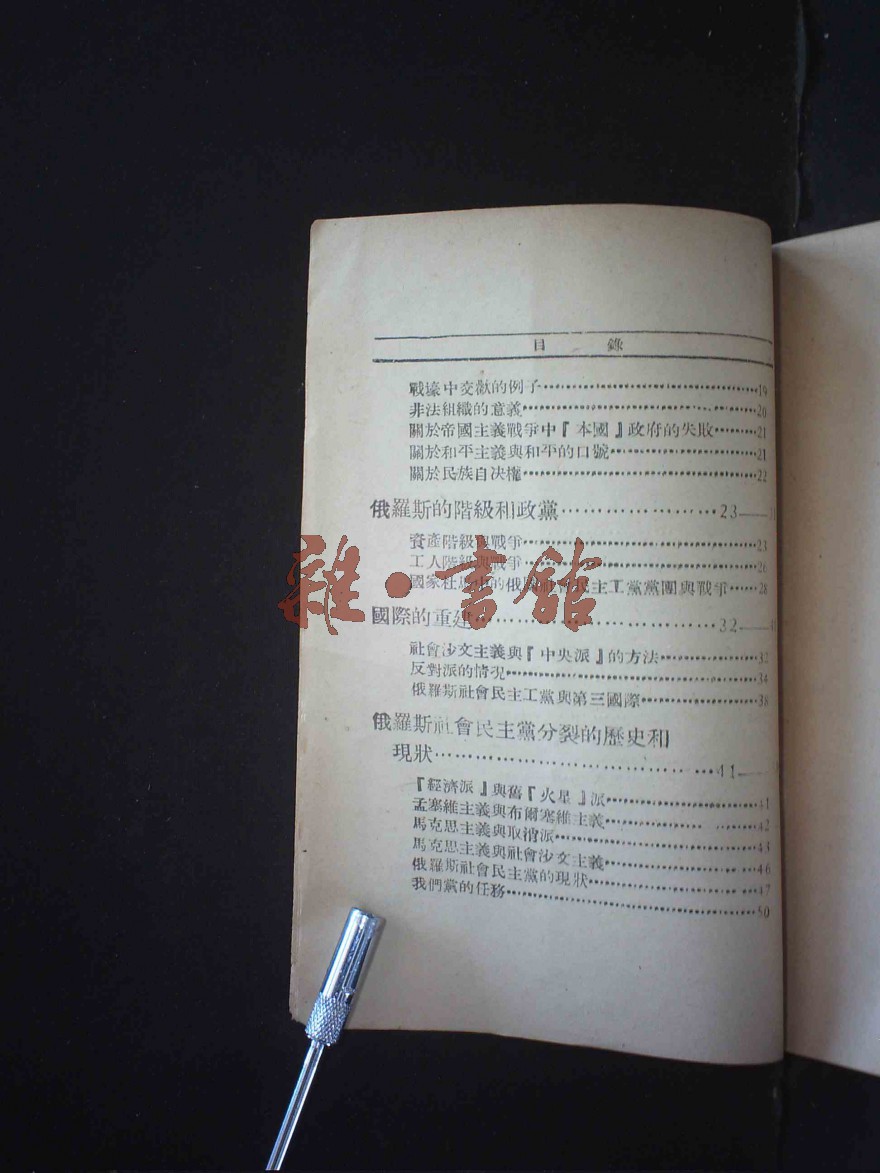 目 錄
戰壕中交歡的例子……19
非法組織的意義……20
關於帝國主義戰爭中『本國』政府的失敗……21
關於和平主義與和平的口號……21
關於民族自決權……22
俄羅斯的階級和政黨……23——
資產階級與戰爭……23
工人階級與戰爭……26
國家社 的俄國社會民主工黨黨團與戰爭……28
國際的重建……32——
社會沙文主義與『中央派』的方法……32
反對派的情況……34
俄羅斯社會民主工黨與第三國際……38
俄羅斯社會民主黨分裂的歷史和
現狀……41——
『經濟派』與舊『火星』派……41
孟塞維主義與布爾塞維主義……42
馬克思主義與取消派……43
馬克思主義與社會沙文主義……46
俄羅斯社會民主黨的現狀……47
我們黨的任務……50
雜·書館